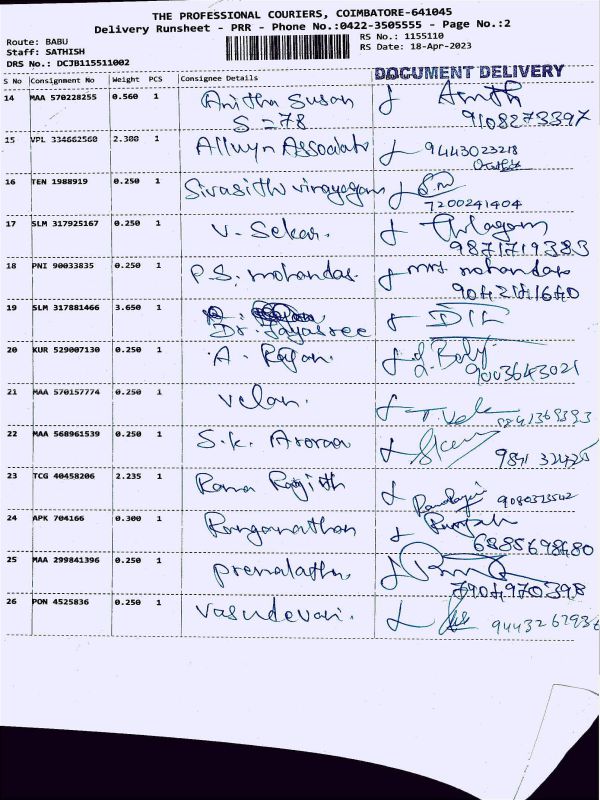 THE PROFESSIONAL COURIERS, COIMBATORE-641045
Delivery Runsheet - PRR - Phone No.:0422-3505555 - Page No.:2
Route: BABU
Staff: SATHISH
DRS No.: DCJB115511002
RS No.: 1155110
RS Date: 18-Apr-2023
DOCUMENT DELIVERY
S No Consignment No Weight PCS Consignee Details
14 MAA 570228255 0.560 1 Anitha Susan
S = 78
9108273397
15 VPL 334662560 2.300 1 Allwyn Associate 9443023218
16 TEN 1988919 0.250 1 Sivasithu virayagam
7200241404
17 SLM 317925167 0.250 1 V. Sekar.
9871719383
18 PNI 90033835 0.250 1 P.S. mohandas. mrs mohandas
9042141640
19 SLM 317881466 3.650 1
Dr. Jayasree
20 KUR 529007130 0.250 1 A. Rajan.
9003643021
21 MAA 570157774 0.250 1 velan.
9841369393
22 MAA 568961539 0.250 1 S.K.
23 TCG 40458206 2.235 1 Rama Ragith
9080323542
24 APK 704166 0.300 1 Ranganathan
25 MAA 299841396 0.250 1 premalatha
7904970398
26 PON 4525836 0.250 1 vasudevan.